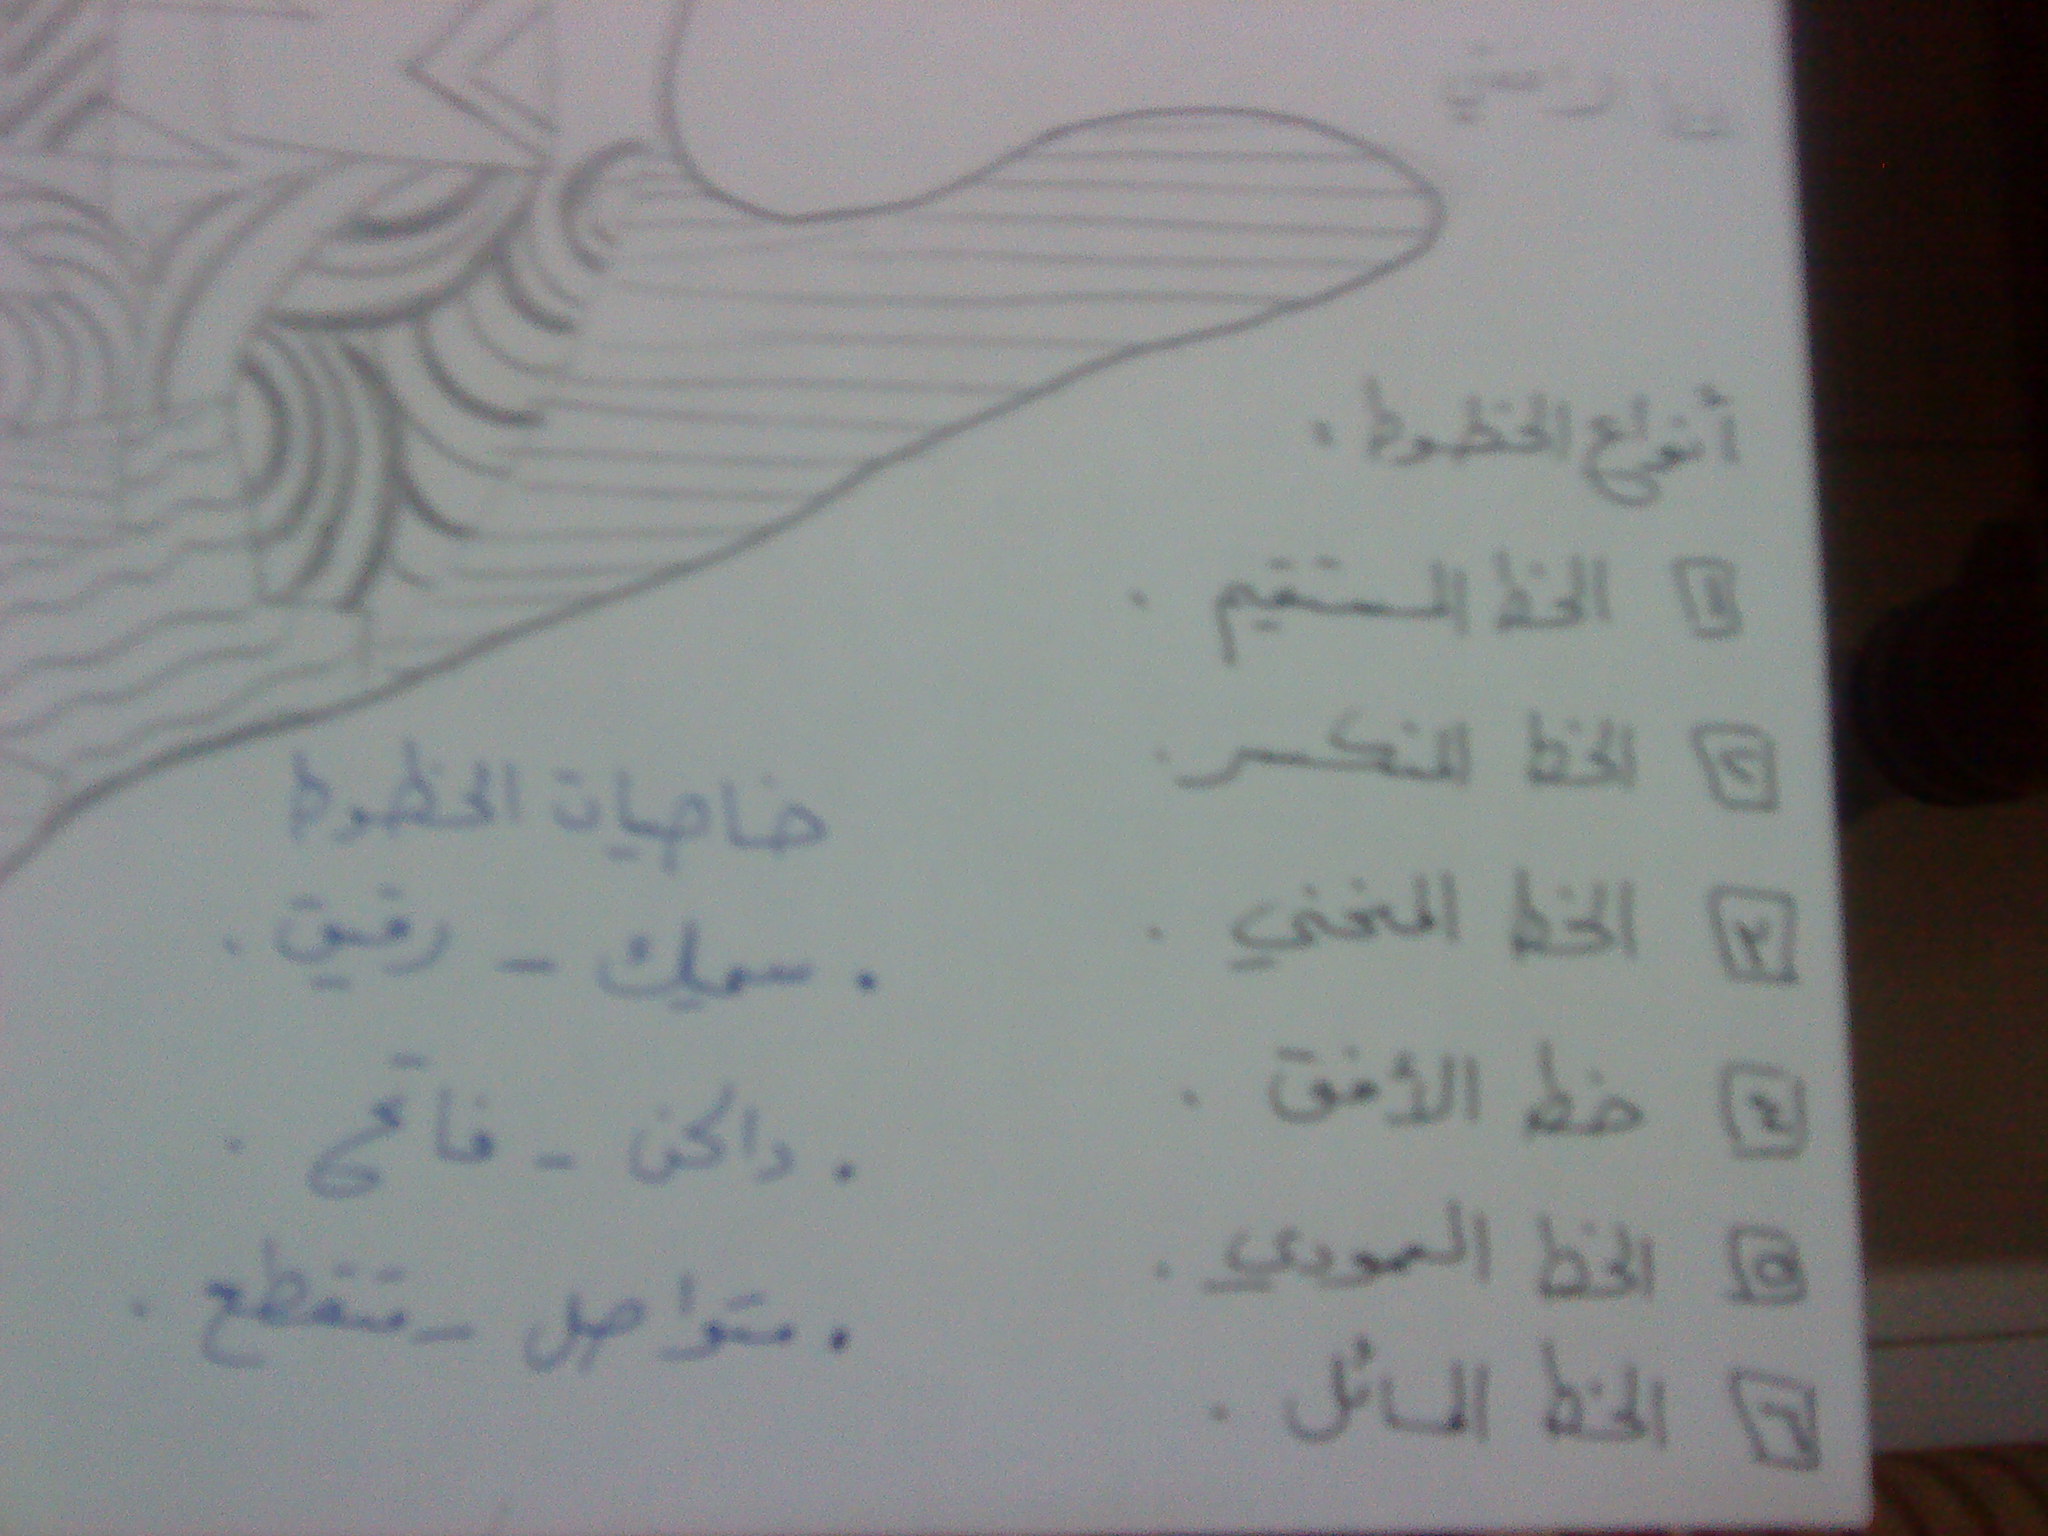 أنواع الخطوط .
1 الخط المستقيم .
2 الخط المنكسر .
3 الخط المنحني .
4 خط الأفق .
5 الخط العمودي .
6 الخط المائل .
خاصيات الخطوط
. سميك - رقيق .
. داكن - فاتح .
. متواصل - متقطع .